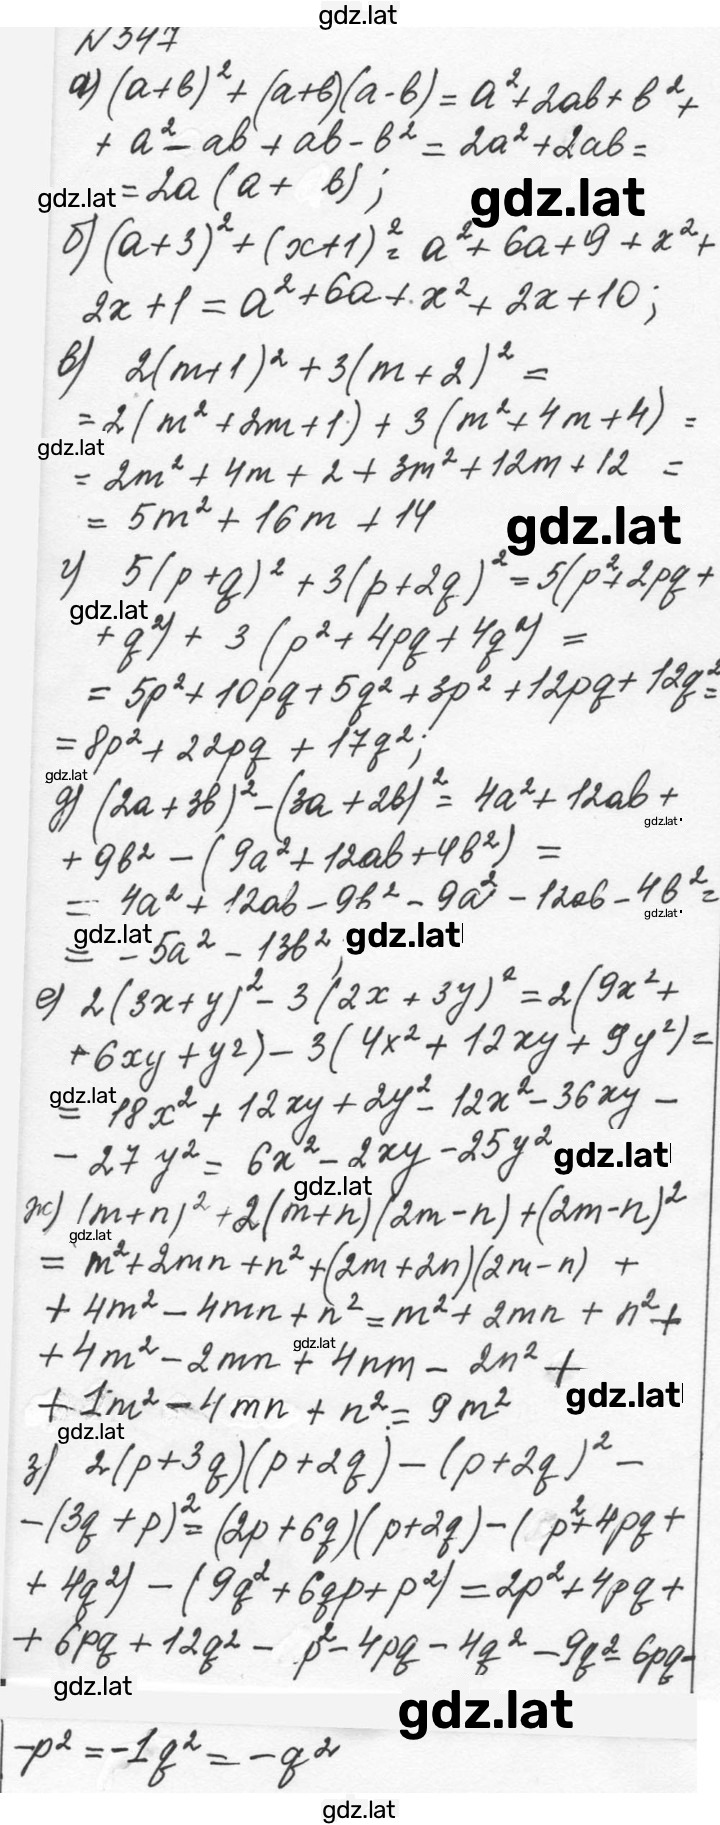 gdz.lat
N 347
а) (a+b)² + (a+b)(a-b) = a²+2ab+b²+
+ a² - ab + ab - b² = 2a²+2ab=
gdz.lat = 2a (a + b);
gdz.lat
б) (a+3)² + (x+1)² = a² + 6a + 9 + x² +
2x + 1 = a² + 6a + x² + 2x + 10;
в) 2(m+1)² + 3(m+2)² =
= 2(m² + 2m + 1) + 3(m² + 4m + 4) =
gdz.lat
= 2m² + 4m + 2 + 3m² + 12m + 12 =
= 5m² + 16m + 14
gdz.lat
г) 5(p+q)² + 3(p+2q)² = 5(p²+2pq+
gdz.lat
+ q²) + 3(p² + 4pq + 4q²) =
= 5p² + 10pq + 5q² + 3p² + 12pq + 12q² =
= 8p² + 22pq + 17q²;
gdz.lat
д) (2a+3b)² - (3a+2b)² = 4a² + 12ab +
gdz.lat
+ 9b² - (9a² + 12ab + 4b²) =
= 4a² + 12ab - 9b² - 9a² - 12ab - 4b² =
gdz.lat
gdz.lat gdz.lat
= - 5a² - 13b²;
е) 2(3x+y)² - 3(2x+3y)² = 2(9x² +
+ 6xy + y²) - 3(4x² + 12xy + 9y²) =
gdz.lat
= 18x² + 12xy + 2y² - 12x² - 36xy -
- 27y² = 6x² - 2xy - 25y²
gdz.lat
gdz.lat
ж) (m+n)² + 2(m+n)(2m-n) + (2m-n)²
gdz.lat
= m² + 2mn + n² + (2m+2n)(2m-n) +
+ 4m² - 4mn + n² = m² + 2mn + n² +
gdz.lat
+ 4m² - 2mn + 4nm - 2n² +
gdz.lat
+ 1m² - 4mn + n² = 9m²
gdz.lat
з) 2(p+3q)(p+2q) - (p+2q)² -
- (3q+p)² = (2p+6q)(p+2q) - (p²+4pq+
+ 4q²) - (9q² + 6qp + p²) = 2p² + 4pq +
+ 6pq + 12q² - p² - 4pq - 4q² - 9q² = 6pq -
gdz.lat
gdz.lat
-p² = -1q² = -q²
gdz.lat